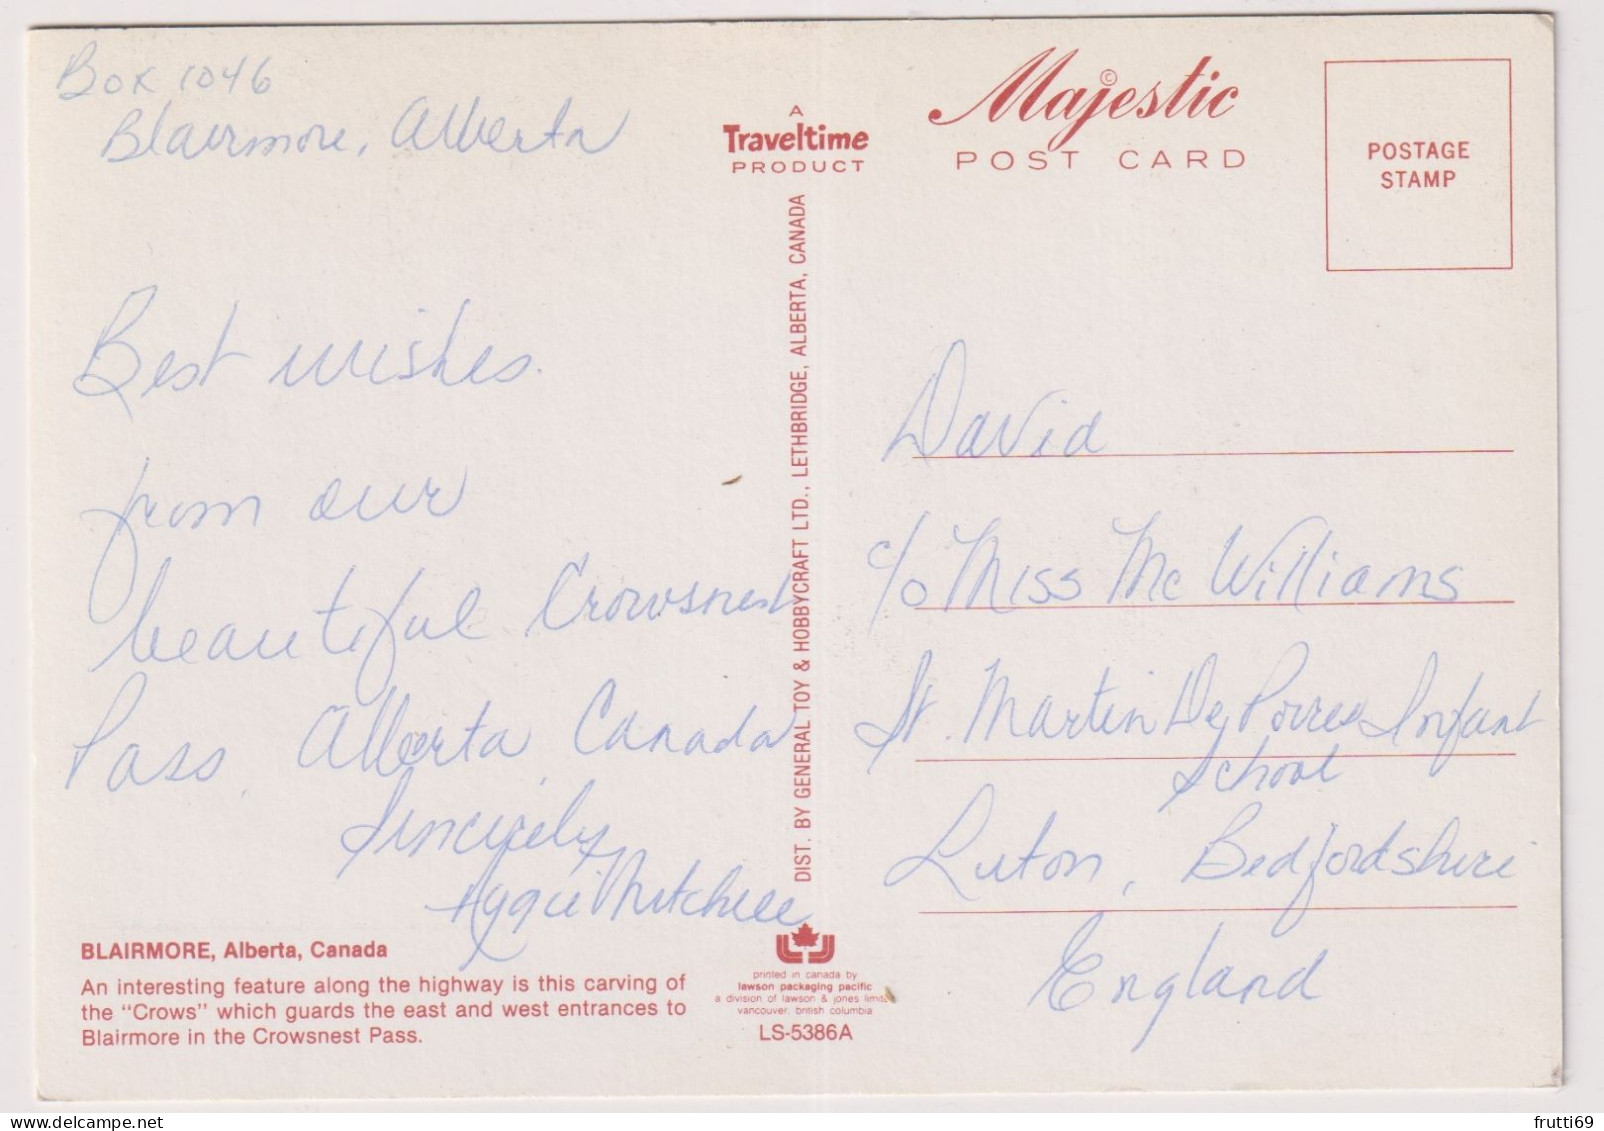 Box 1046
Blairmore, Alberta
Best wishes.
from our
beautiful Crowsnest
Pass, Alberta, Canada
Sincerely
Aggie Mitchell
BLAIRMORE, Alberta, Canada
An interesting feature along the highway is this carving of
the "Crows" which guards the east and west entrances to
Blairmore in the Crowsnest Pass.
A
Traveltime
PRODUCT
DIST. BY GENERAL TOY & HOBBYCRAFT LTD., LETHBRIDGE, ALBERTA, CANADA
printed in canada by
lawson packaging pacific
a division of lawson & jones limited
vancouver, british columbia
LS-5386A
Majestic ©
POST CARD
POSTAGE
STAMP
David
c/o Miss Mc Williams
St. Martin De Porres Infant
School
Luton, Bedfordshire
England
frutti69